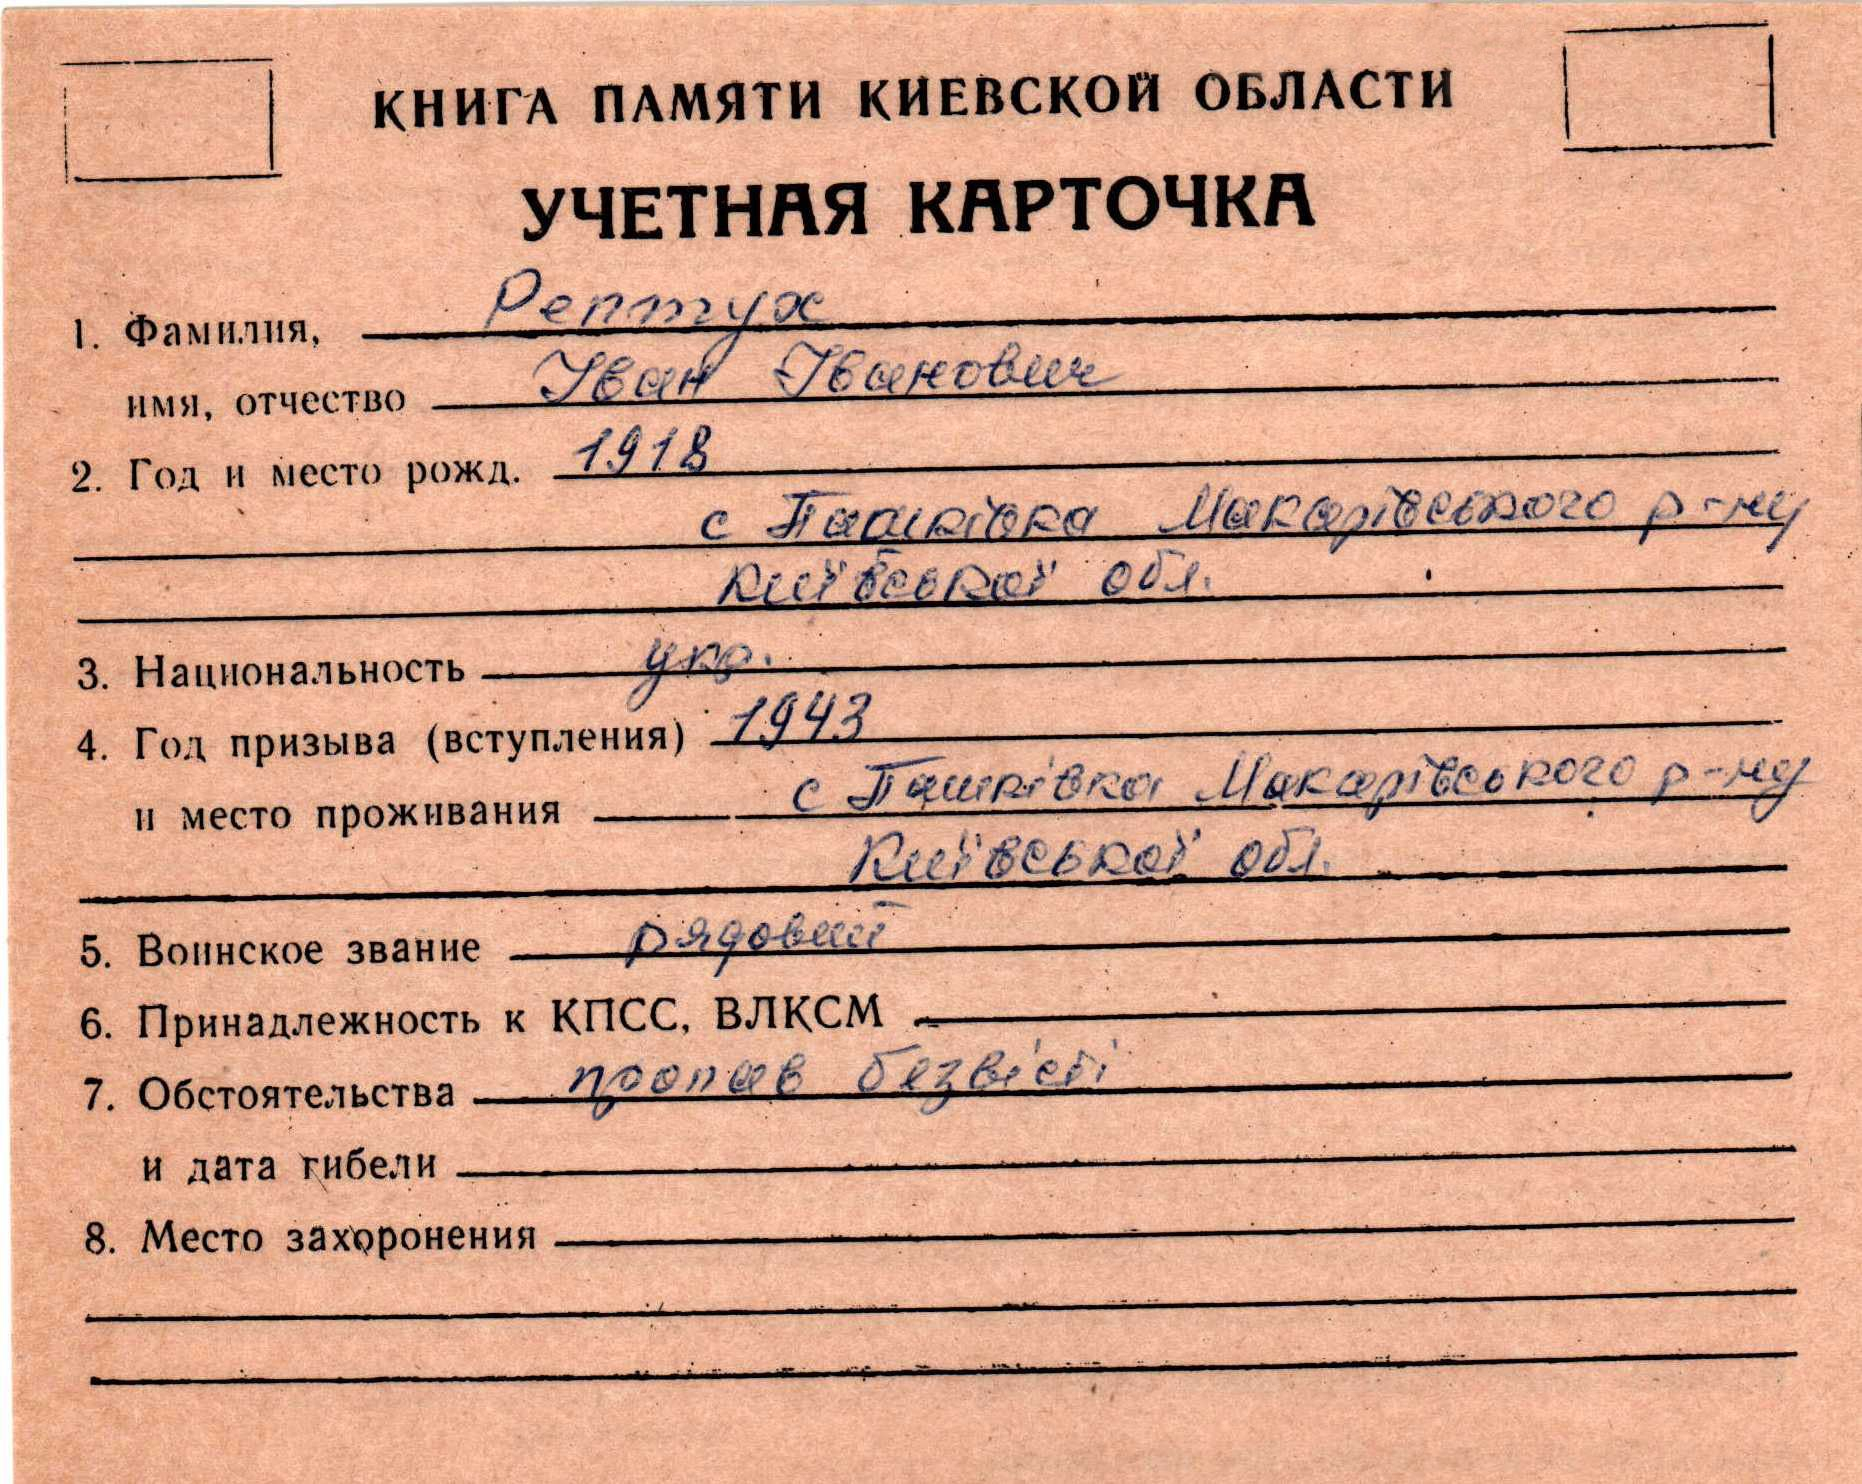 КНИГА ПАМЯТИ КИЕВСКОЙ ОБЛАСТИ
УЧЕТНАЯ КАРТОЧКА
1. Фамилия, Рептух
имя, отчество Іван Іванович
2. Год и место рожд. 1918
с Пашківка Макарівського р-ну
Київської обл.
3. Национальность укр.
4. Год призыва (вступления) 1943
и место проживания с Пашківка Макарівського р-ну
Київської обл.
5. Воинское звание рядовий
6. Принадлежность к КПСС, ВЛКСМ
7. Обстоятельства пропав безвісті
и дата гибели
8. Место захоронения